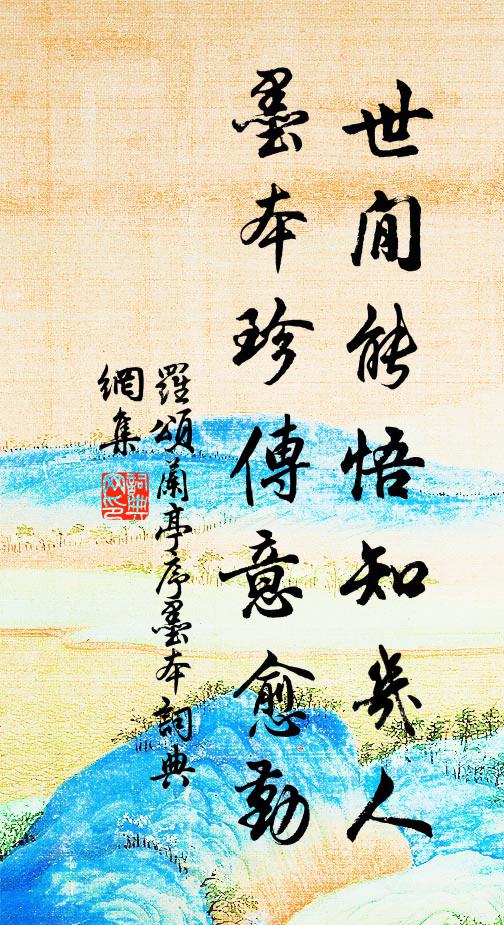 世間能悟知幾人
墨本珍傳意愈勤
羅頌蘭亭序墨本詞典
網集
詞典